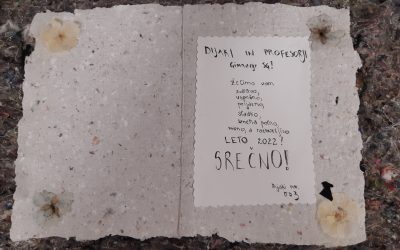 DIJAKI IN PROFESORJI
Gimnazije
Želimo vam
zdravo,
uspešno,
prijazno,
sladko,
smeha polno,
mirno, a razburljivo
LETO 2022!
SREČNO!
Dijaki